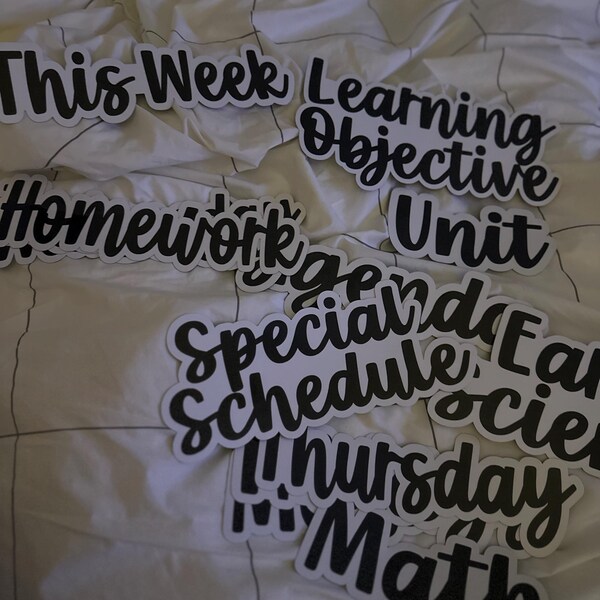 This Week
Learning
Objective
Homework
Unit
genda
Special
Schedule
Ear
Scien
Thursday
Math